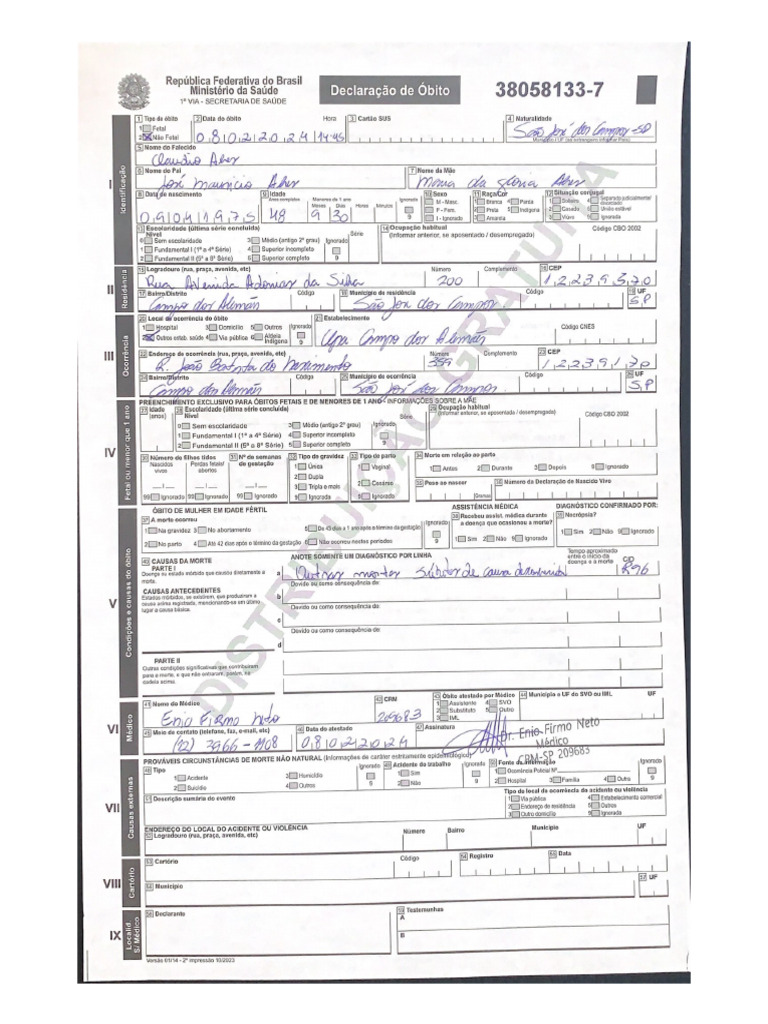 República Federativa do Brasil
Ministério da Saúde
1ª VIA - SECRETARIA DE SAÚDE
Declaração de Óbito
38058133-7
I Identificação
1 Tipo de óbito 2 Data do óbito Hora 3 Cartão SUS 4 Naturalidade
1 Fetal
2 Não Fetal 08022024 14:45 São José dos Campos-SP
5 Nome do Falecido
Claudio Alves
6 Nome do Pai 7 Nome da Mãe
José Mauricio Alves Maria da Glória Alves
8 Data de nascimento 9 Idade Anos completos Menores de 1 ano Meses Dias Horas Minutos Ignorado 10 Sexo 11 Raça/Cor 12 Situação conjugal
M - Masc. F - Fem. I - Ignorado
1 Branca 2 Preta 3 Amarela 4 Parda 5 Indígena
1 Solteiro 2 Casado 3 Viúvo 4 Separado judicialmente/divorciado 5 União estável 9 Ignorada
09041975 48 9 30
13 Escolaridade (última série concluída) 14 Ocupação habitual Código CBO 2002
Nível Série (informar anterior, se aposentado / desempregado)
0 Sem escolaridade 3 Médio (antigo 2º grau) Ignorado
1 Fundamental I (1ª a 4ª Série) 4 Superior incompleto 9
2 Fundamental II (5ª a 8ª Série) 5 Superior completo
II Residência
15 Logradouro (rua, praça, avenida, etc) Número Complemento 16 CEP
Rua Avenida Adonias da Silva 200 12239570
17 Bairro/Distrito Código 18 Município de residência Código 19 UF
Campo dos Alemães São José dos Campos SP
III Ocorrência
20 Local de ocorrência do óbito 21 Estabelecimento Código CNES
1 Hospital 3 Domicílio 5 Outros Ignorado
2 Outros estab. saúde 4 Via pública 6 Aldeia Indígena 9
Upa Campo dos Alemães
22 Endereço de ocorrência (rua, praça, avenida, etc) Número Complemento 23 CEP
R. João Batista do Nascimento 359 12239170
24 Bairro/Distrito Código 25 Município de ocorrência Código 26 UF
Campo dos Alemães São José dos Campos SP
IV Fetal ou menor que 1 ano
PREENCHIMENTO EXCLUSIVO PARA ÓBITOS FETAIS E DE MENORES DE 1 ANO - INFORMAÇÕES SOBRE A MÃE
27 Idade (anos) 28 Escolaridade (última série concluída) 29 Ocupação habitual
Nível Série Ignorado (informar anterior, se aposentada / desempregada) Código CBO 2002
0 Sem escolaridade 3 Médio (antigo 2º grau)
1 Fundamental I (1ª a 4ª Série) 4 Superior incompleto
2 Fundamental II (5ª a 8ª Série) 5 Superior completo 9
30 Número de filhos tidos 31 Nº de semanas de gestação 32 Tipo de gravidez 33 Tipo de parto 34 Morte em relação ao parto
Nascidos vivos Perdas fetais/abortos
1 Única 2 Dupla 3 Tripla e mais 9 Ignorada
1 Vaginal 2 Cesáreo 9 Ignorado
1 Antes 2 Durante 3 Depois 9 Ignorado
35 Peso ao nascer Gramas 36 Número da Declaração de Nascido Vivo
99 Ignorado 99 Ignorado 99 Ignorado
V Condições e causas do óbito
ÓBITO DE MULHER EM IDADE FÉRTIL ASSISTÊNCIA MÉDICA DIAGNÓSTICO CONFIRMADO POR:
37 A morte ocorreu 38 Recebeu assist. médica durante a doença que ocasionou a morte? 39 Necrópsia?
1 Na gravidez 3 No abortamento 5 De 43 dias a 1 ano após o término da gestação Ignorado
2 No parto 4 Até 42 dias após o término da gestação 8 Não ocorreu nestes períodos 9
1 Sim 2 Não 9 Ignorado 1 Sim 2 Não 9 Ignorado
40 CAUSAS DA MORTE ANOTE SOMENTE UM DIAGNÓSTICO POR LINHA Tempo aproximado entre o início da doença e a morte CID
PARTE I
Doença ou estado mórbido que causou diretamente a morte. a Outras mortes súbitas de causa desconhecida R96
Devido ou como consequência de:
CAUSAS ANTECEDENTES
Estados mórbidos, se existirem, que produziram a causa acima registrada, mencionando-se em último lugar a causa básica. b
Devido ou como consequência de:
c
Devido ou como consequência de:
d
PARTE II
Outras condições significativas que contribuíram para a morte, e que não entraram, porém, na cadeia acima.
VI Médico
41 Nome do Médico 42 CRM 43 Óbito atestado por Médico 44 Município e UF do SVO ou IML UF
Enio Firmo Neto 209683
1 Assistente 2 Substituto 3 IML 4 SVO 5 Outro
45 Meio de contato (telefone, fax, e-mail, etc) 46 Data do atestado 47 Assinatura
(12) 3966-1108 08022024
Dr. Enio Firmo Neto
Médico
CRM-SP 209683
VII Causas externas
PROVÁVEIS CIRCUNSTÂNCIAS DE MORTE NÃO NATURAL (Informações de caráter estritamente epidemiológico)
48 Tipo 49 Acidente do trabalho 50 Fonte da Informação
1 Acidente 3 Homicídio Ignorado
2 Suicídio 4 Outros 9
1 Sim 2 Não Ignorado 9
1 Ocorrência Policial Nº 2 Hospital 3 Família 4 Outra Ignorado 9
51 Descrição sumária do evento Tipo do local de ocorrência do acidente ou violência
1 Via pública 4 Estabelecimento comercial
2 Endereço de residência 5 Outros
3 Outro domicílio 9 Ignorada
ENDEREÇO DO LOCAL DO ACIDENTE OU VIOLÊNCIA
52 Logradouro (rua, praça, avenida, etc) Número Bairro Município UF
VIII Cartório
53 Cartório Código 54 Registro 55 Data
56 Município 57 UF
IX Localid. S/ Médico
58 Declarante 59 Testemunhas
A
B
Versão 01/14 - 2ª impressão 10/2023
DISTRIBUIÇÃO GRATUITA